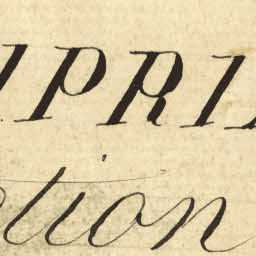 IPRI
tion